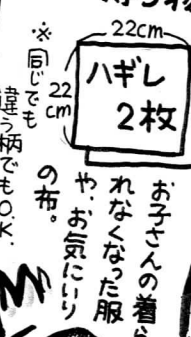 22cm
22
cm
ハギレ
2枚
お子さんの着ら
れなくなった服
や、お気にいり
の布。
※同じでも
違う柄でもO.K.